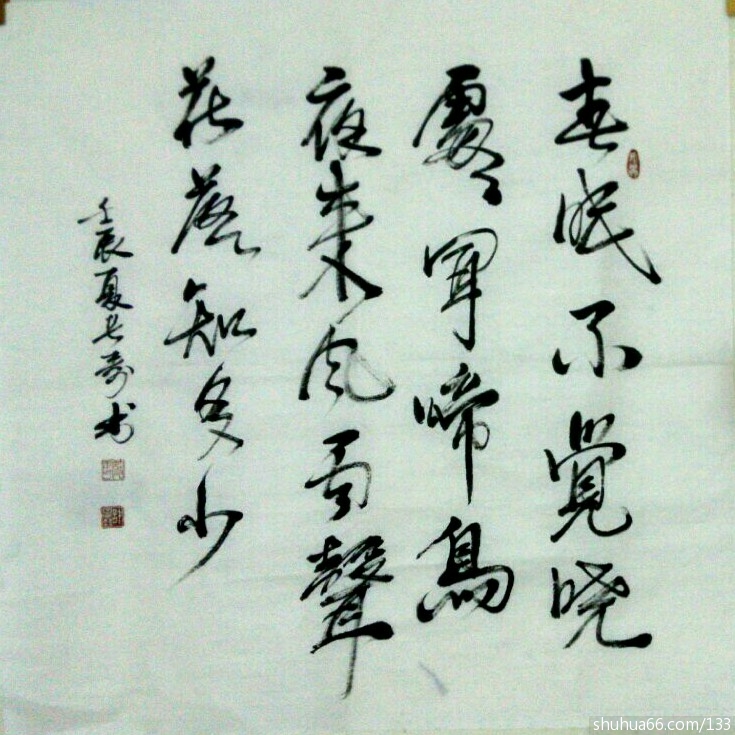 春眠不覺晓
處々聞啼鳥
夜来風雨聲
花落知多少
壬辰夏长寿书
shuhua66.com/133